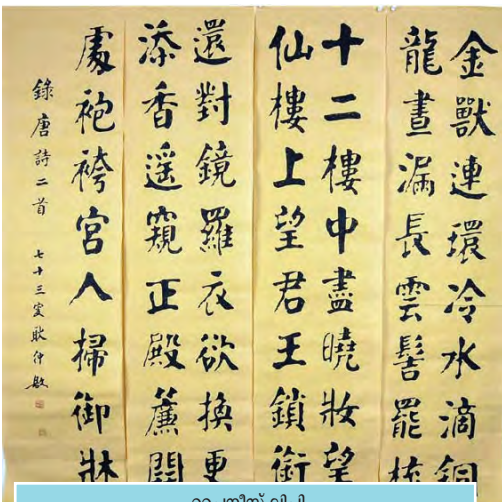 金獸連環冷水滴銅
龍晝漏長雲髻罷梳
十二樓中盡曉妝望
仙樓上望君王鎖銜
還對鏡羅衣欲換更
添香遥窺正殿簾開
處袍袴宮人掃御牀
錄唐詩二首 七十三叟耿仲